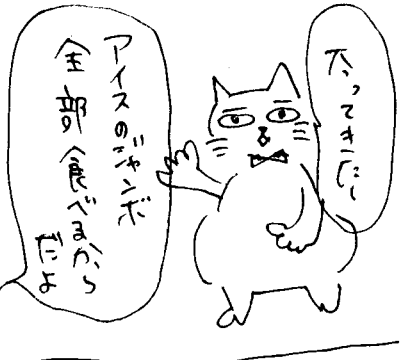 太ってきた～
アイスのジャンボ
全部食べるから
だよ